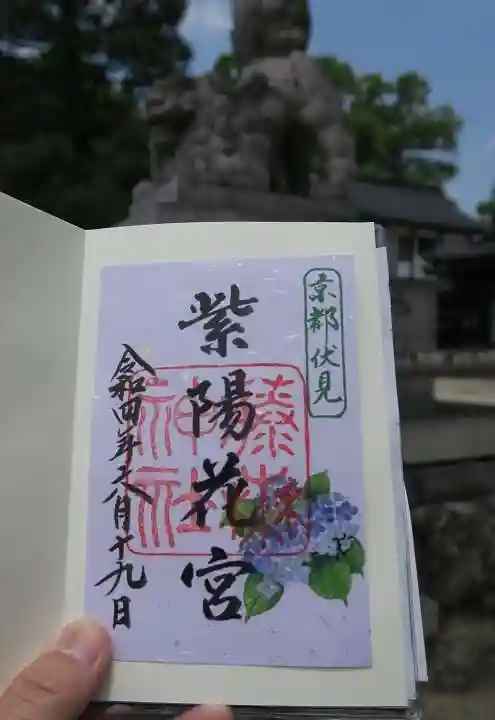 京都伏見
紫陽花宮
藤森
神社
令和四年六月十九日